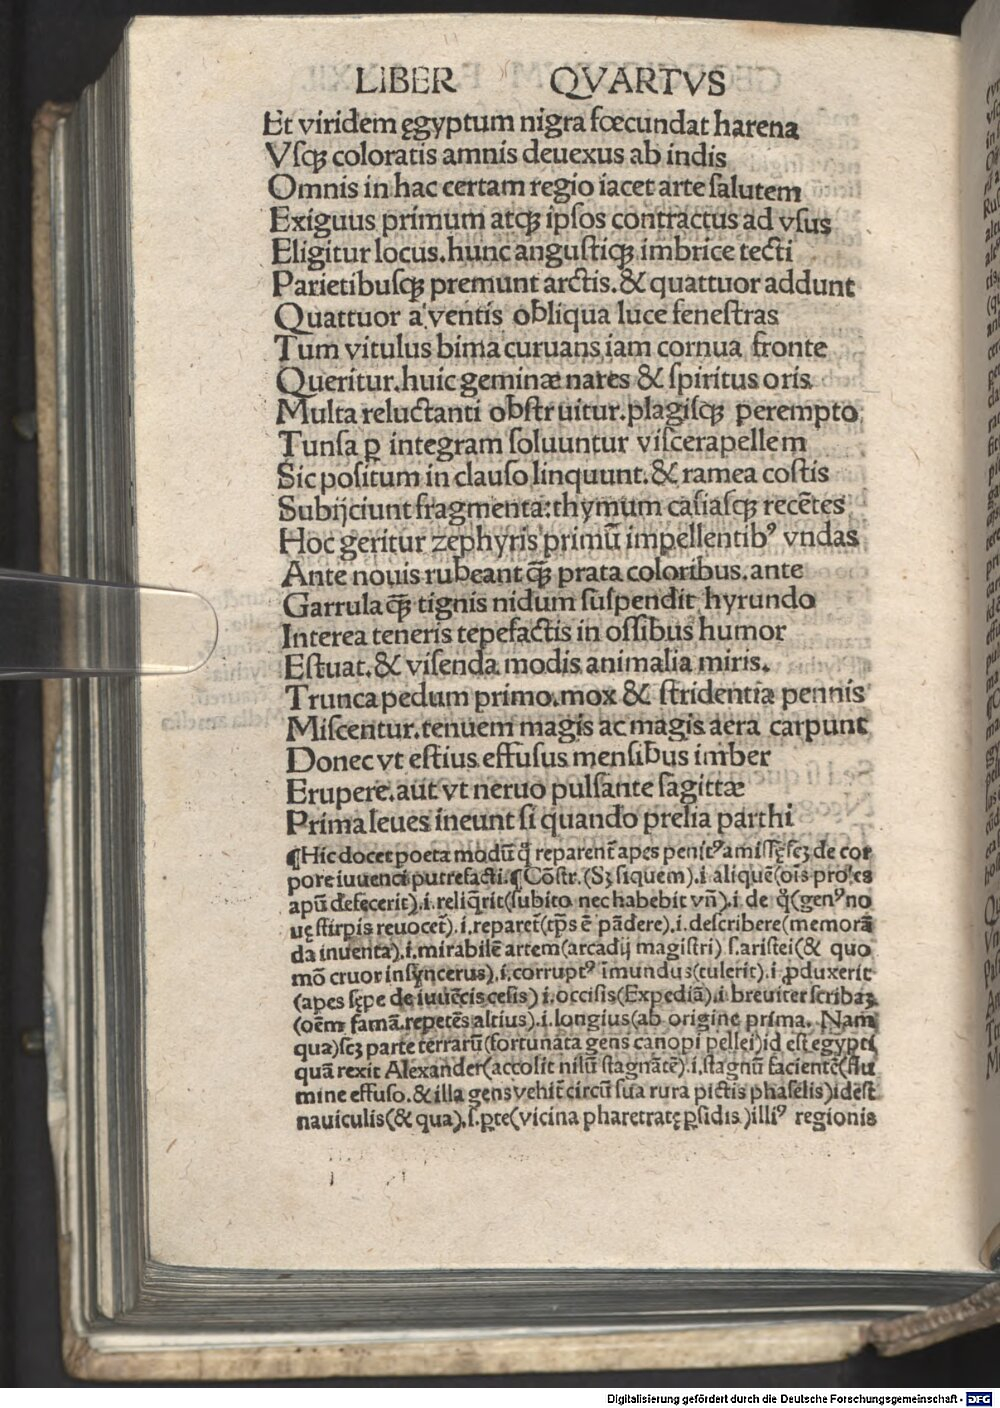 LIBER QVARTVS
Et viridem ęgyptum nigra fœcundat harena
Vſqꝫ coloratis amnis deuexus ab indis
Omnis in hac certam regio iacet arte ſalutem
Exiguus primum atqꝫ ipſos contractus ad vſus
Eligitur locus. hunc anguſtiqꝫ imbrice tecti
Parietibuſqꝫ premunt arctis. & quattuor addunt
Quattuor a ventis obliqua luce feneſtras
Tum vitulus bima curuans iam cornua fronte
Queritur. huic geminæ nares & ſpiritus oris
Multa reluctanti obſtruitur. plagiſqꝫ perempto
Tunſa ꝑ integram ſoluuntur viſcera pellem
Sic poſitum in clauſo linquunt. & ramea coſtis
Subijciunt fragmenta: thymum caſiaſqꝫ recẽtes
Hoc geritur zephyris primũ impellentibꝰ vndas
Ante nouis rubeant q̃ꝫ prata coloribus. ante
Garrula q̃ꝫ tignis nidum ſuſpendit hyrundo
Interea teneris tepefactis in oſſibus humor
Eſtuat. & viſenda modis animalia miris.
Trunca pedum primo. mox & ſtridentia pennis
Miſcentur. tenuem magis ac magis aera carpunt
Donec vt eſtius effuſus menſibus imber
Erupere. aut vt neruo pulſante ſagittæ
Prima leues ineunt ſi quando prelia parthi
¶Hic docet poeta modũ q̃ reparent᷑ apes penitꝰ amiſſę ſcꝫ de cor
pore iuuenci putrefacti. ¶Cõſtr. (Sꝫ ſi quem) .i. aliquẽ (oĩs proles
apũ defecerit) .i. reliq̃rit (ſubito nec habebit vñ) .i. de q̃ (genꝰ no
uę ſtirpis reuocet᷑) .i. reparet᷑ (tp̃s ẽ pãdere) .i. deſcribere (memorã
da inuenta) .i. mirabilẽ artem (arcadij magiſtri) ſ. ariſtei (& quo
mõ cruor inſyncerus) .i. corruptꝰ ĩmundus (tulerit) .i. ꝓduxerit
(apes ſępe de iuuẽcis ceſis) .i. occiſis (Expediã) .i. breuiter ſcribaꝫ
(oẽm famã. repetẽs altius) .i. longius (ab origine prima. Nam
qua) ſcꝫ parte terrarũ (fortunata gens canopi pellei) id eſt egypti
quã rexit Alexander (accolit nilũ ſtagnãtẽ) .i. ſtagnũ facientẽ (flu
mine effuſo. & illa gens vehit᷑ circũ ſua rura pictis phaſelis) ideſt
nauiculis (& qua) .ſ. ꝑte (vicina pharetratę ꝑſidis) illiꝰ regionis
Digitalisierung gefördert durch die Deutsche Forschungsgemeinschaft - DFG